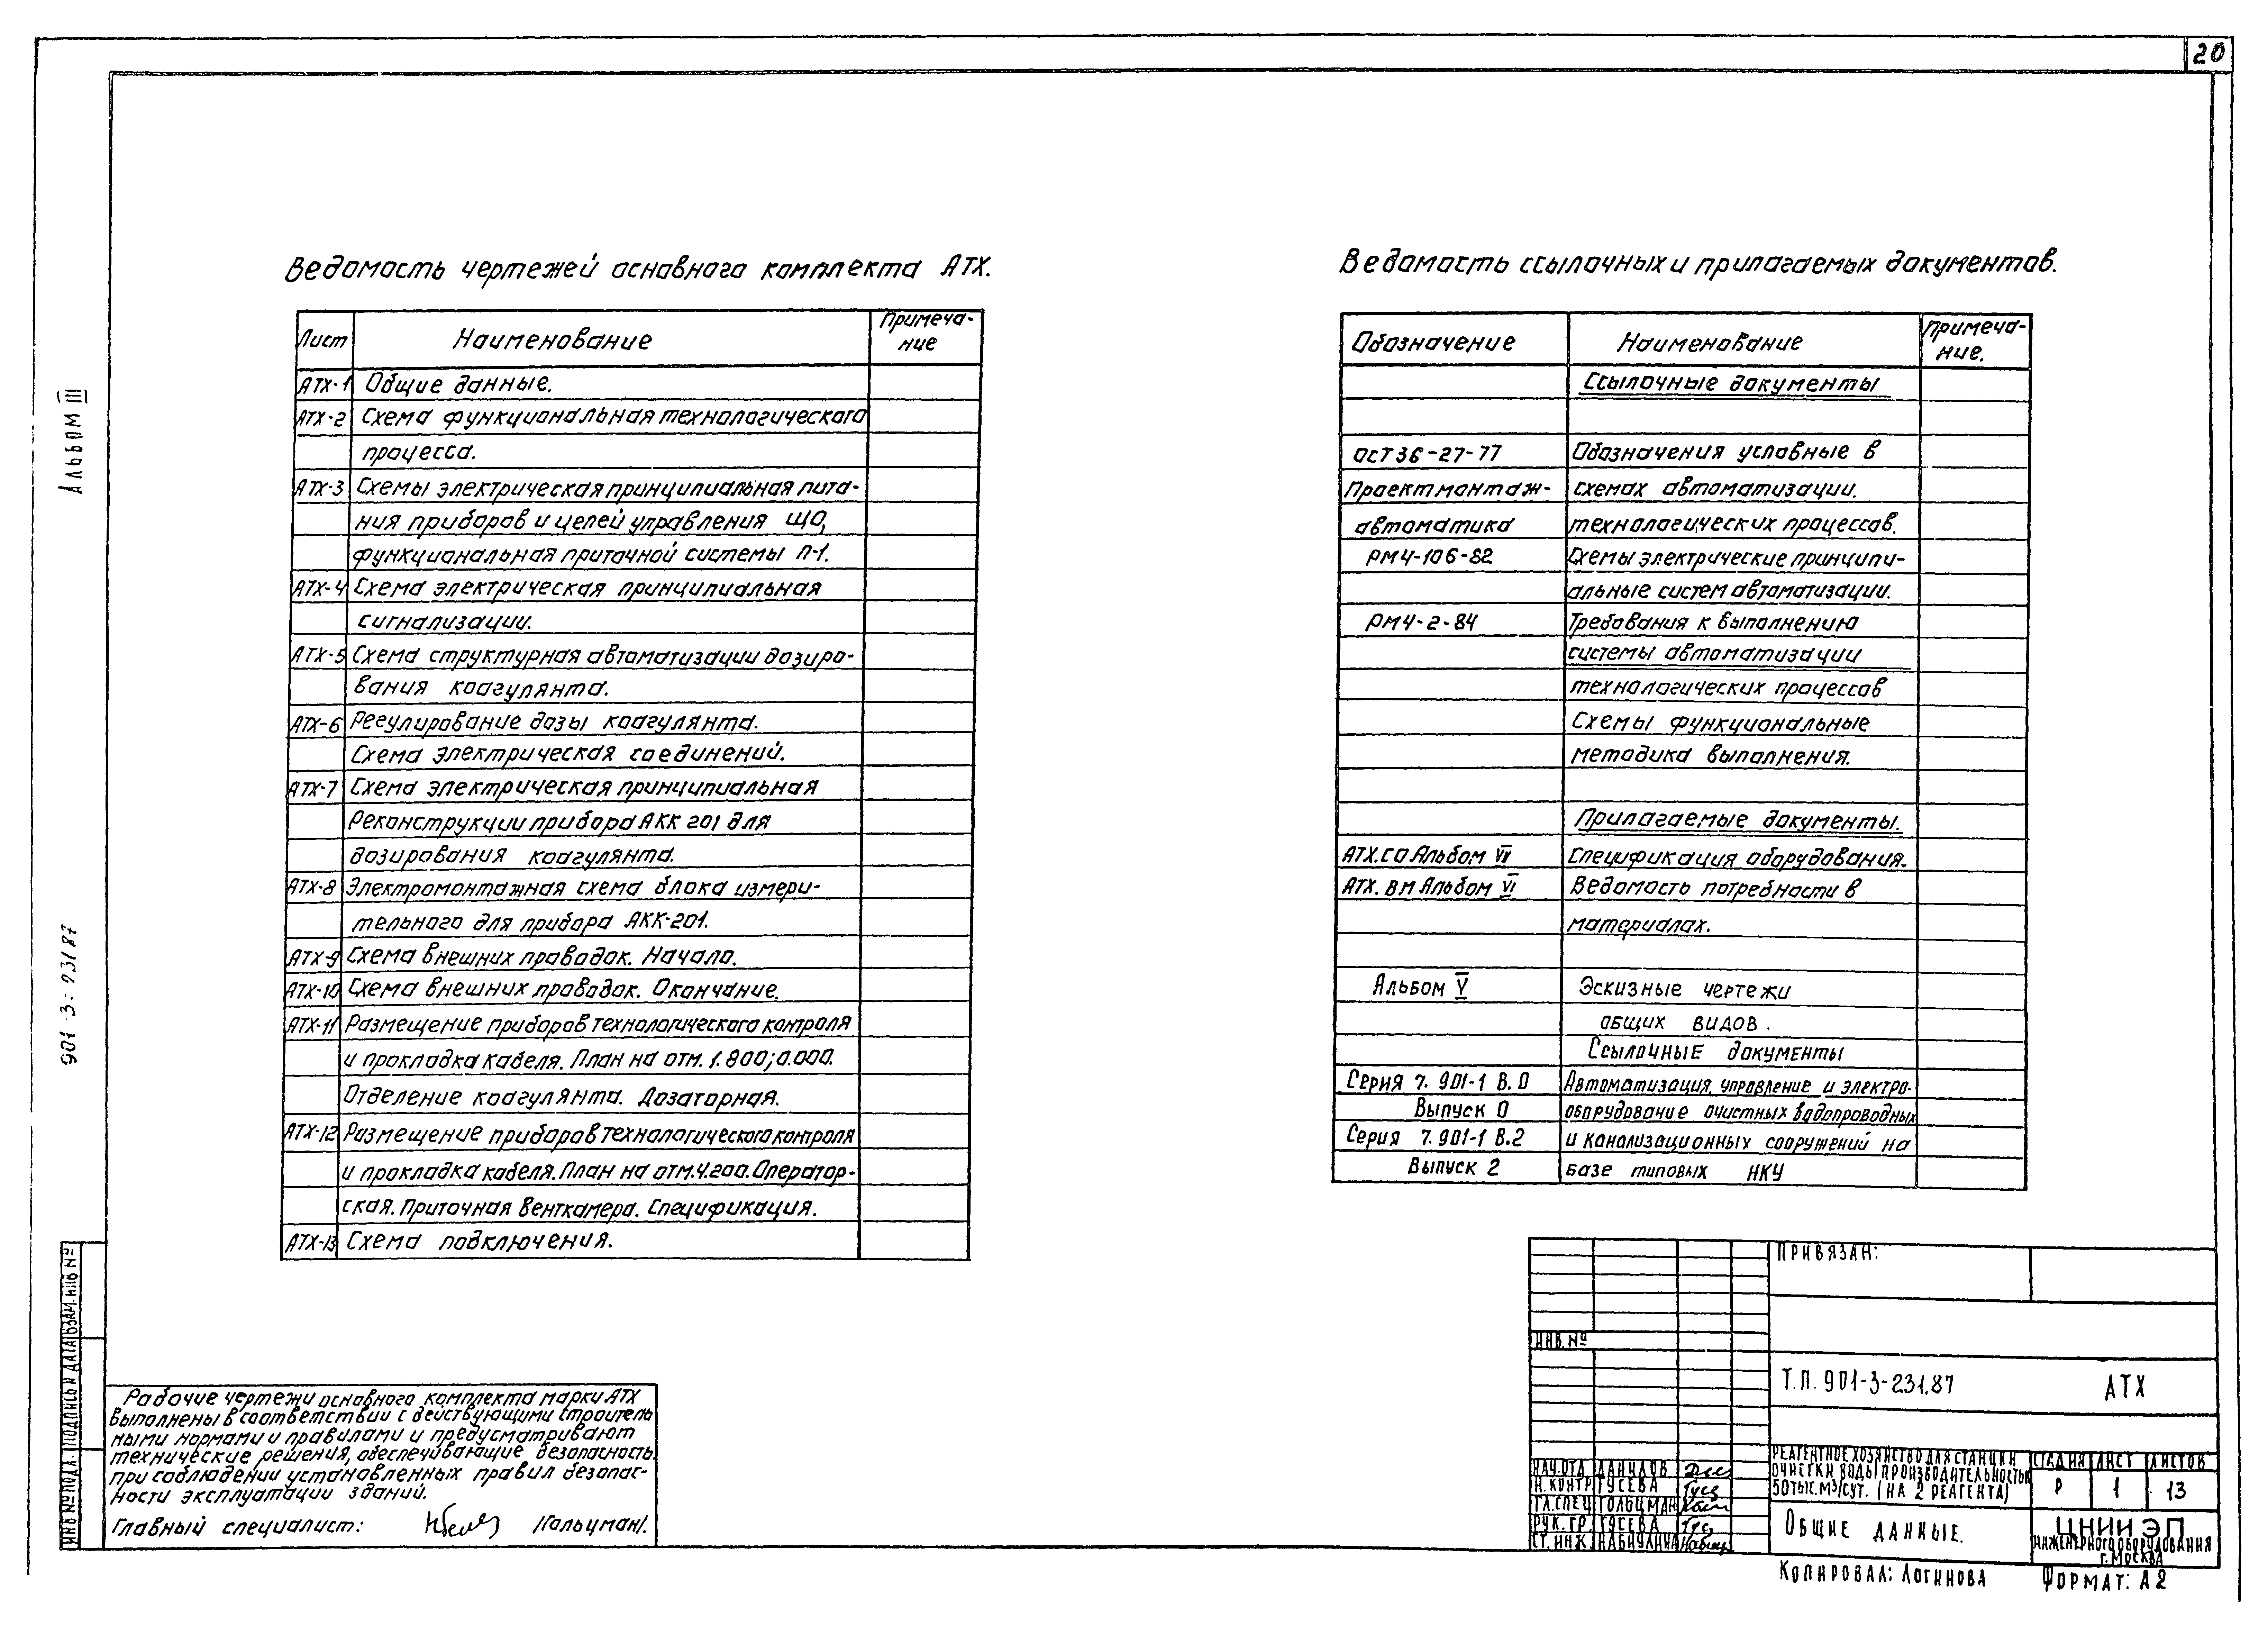 20
Альбом III
901-3-231.87
Ведомость чертежей основного комплекта АТХ.
Лист Наименование Примеча-
ние
АТХ-1 Общие данные.
АТХ-2 Схема функциональная технологического
процесса.
АТХ-3 Схемы электрическая принципиальная пита-
ния приборов и цепей управления ЩО,
функциональная приточной системы П-1.
АТХ-4 Схема электрическая принципиальная
сигнализации.
АТХ-5 Схема структурная автоматизации дозиро-
вания коагулянта.
АТХ-6 Регулирование дозы коагулянта.
Схема электрическая соединений.
АТХ-7 Схема электрическая принципиальная
Реконструкции прибора АКК 201 для
дозирования коагулянта.
АТХ-8 Электромонтажная схема блока измери-
тельного для прибора АКК-201.
АТХ-9 Схема внешних проводок. Начало.
АТХ-10 Схема внешних проводок. Окончание.
АТХ-11 Размещение приборов технологического контроля
и прокладка кабеля. План на отм. 1.800; 0.000.
Отделение коагулянта. Дозаторная.
АТХ-12 Размещение приборов технологического контроля
и прокладка кабеля. План на отм. 4.200. Оператор-
ская. Приточная Венткамера. Спецификация.
АТХ-13 Схема подключения.
Ведомость ссылочных и прилагаемых документов.
Обозначение Наименование Примеча-
ние.
Ссылочные документы
ОСТ 36-27-77 Обозначения условные в
Проектмонтаж- схемах автоматизации.
автоматика технологических процессов.
РМ4-106-82 Схемы электрические принципи-
альные систем автоматизации.
РМ4-2-84 Требования к выполнению
системы автоматизации
технологических процессов
Схемы функциональные
методика выполнения.
Прилагаемые документы.
АТХ.СО Альбом VII Спецификация оборудования.
АТХ. ВМ Альбом VI Ведомость потребности в
материалах.
Альбом V Эскизные чертежи
общих видов.
Ссылочные документы
Серия 7.901-1 В.0 Автоматизация, управление и электро-
Выпуск 0 оборудование очистных водопроводных
Серия 7.901-1 В.2 и канализационных сооружений на
Выпуск 2 базе типовых НКУ
Рабочие чертежи основного комплекта марки АТХ
выполнены в соответствии с действующими строитель
ными нормами и правилами и предусматривают
технические решения, обеспечивающие безопасность
при соблюдении установленных правил безопас-
ности эксплуатации зданий.
Главный специалист: /Гольцман/.
ИНВ № ПОДЛ. ПОДПИСЬ И ДАТА ВЗАМ. ИНВ №
ПРИВЯЗАН:
ИНВ. №
Т.П. 901-3-231.87 АТХ
НАЧ. ОТД ДАНИЛОВ
Н. КОНТР ГУСЕВА
ГЛ. СПЕЦ ГОЛЬЦМАН
РУК. ГР. ГУСЕВА
СТ. ИНЖ. НАБИУЛИНА
РЕАГЕНТНОЕ ХОЗЯЙСТВО ДЛЯ СТАНЦИИ
ОЧИСТКИ ВОДЫ ПРОИЗВОДИТЕЛЬНОСТЬЮ
50 ТЫС. М³/СУТ. (НА 2 РЕАГЕНТА)
СТАДИЯ ЛИСТ ЛИСТОВ
Р 1 13
Общие данные.
ЦНИИ ЭП
ИНЖЕНЕРНОГО ОБОРУДОВАНИЯ
г. МОСКВА
Копировал: Логинова Формат: А2